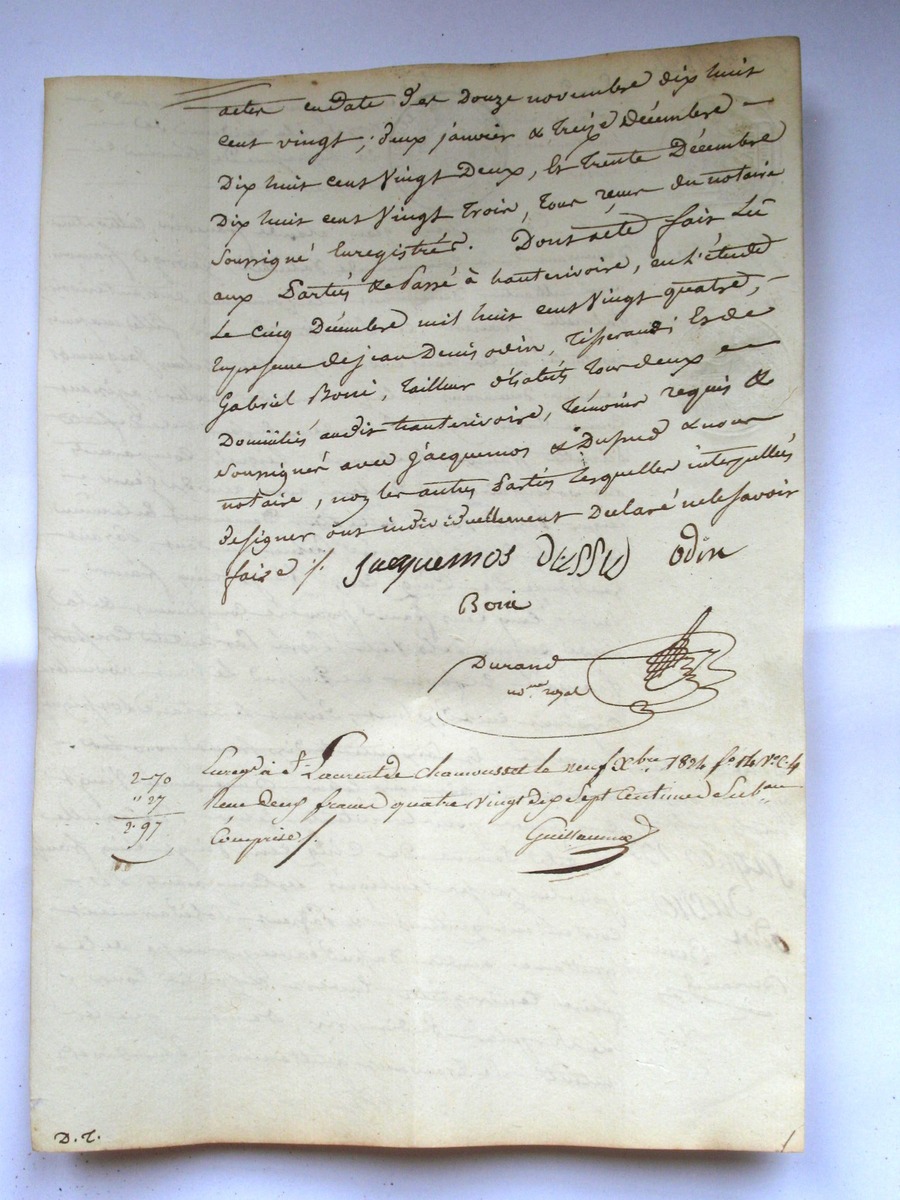 actes en date des Douze novembre dix huit
cent vingt, deux janvier & treize Décembre -
Dix huit cent Vingt Deux, Et Trente Décembre
Dix huit cent Vingt Trois, tous reçus du notaire
soussigné Enregistrés. Dont acte fait Lû
aux Parties & Passé à hauterivoire, en L'étude
Le cinq Décembre mil huit cent Vingt quatre,
En présence de jean Denis odin, tisserand, Et de
Gabriel Boni, tailleur d'habits tous deux
Domiciliés audit hauterivoire, témoins requis &
soussignés avec jacquemos & & nous
notaire, non les autres Parties lesquelles interpellées
de signer ont individuellement Déclaré ne le savoir
faire /. jacquemos odin
Boni
Durand
no.re royal
Enreg.é à S.t Laurent de chamousset le neuf Xbre 1824 f.o 14 V.o C. 4
2-70
Reçu deux francs quatre vingt dix sept Centimes Sub.on
" 27
Comprise /. Guillaume
2.97
D. T.